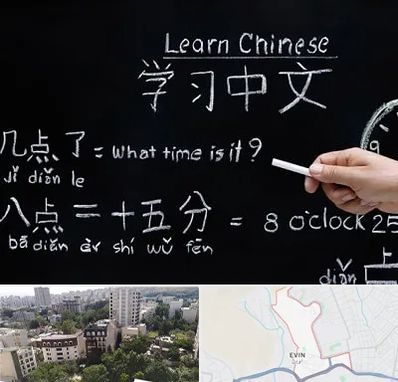 Learn Chinese
学习中文
几点了 = What time is it?
jǐ diǎn le
9
八点二十五分 = 8 o'clock 25
bā diǎn èr shí wǔ fēn
diǎn 上
EVIN
اوین